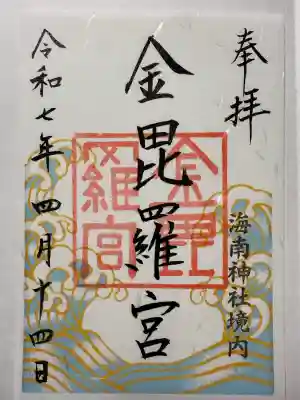 奉拝
海南神社境内
金毘羅宮
金毘羅宮
令和七年 四月十四日